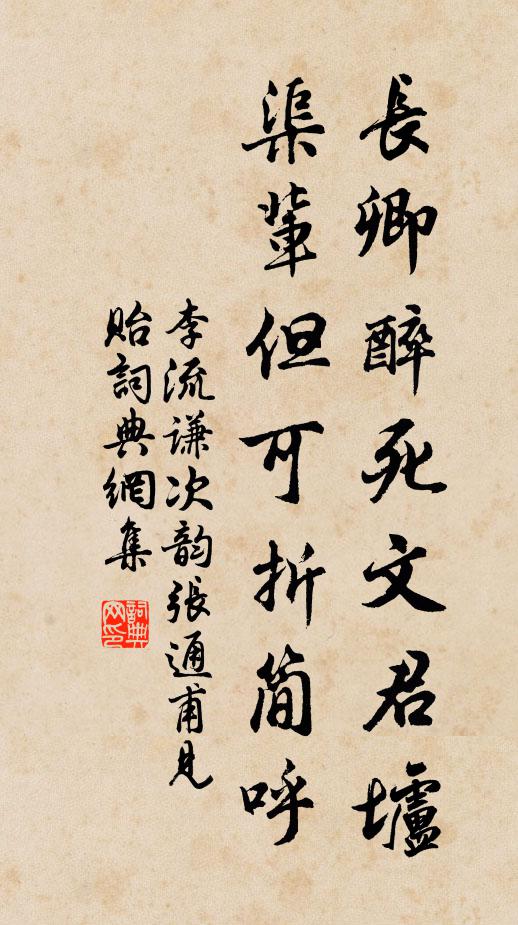 長卿醉死文君壚
渠輩但可折簡呼
李流谦次韵張通甫見
貽詞典網集
詞典网印